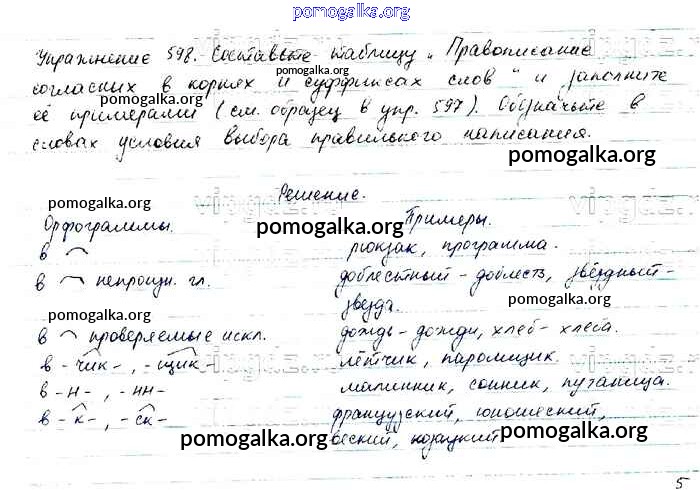 pomogalka.org
Упражнение 598. Составьте таблицу „Правописание
pomogalka.org
согласных в корнях и суффиксах слов" и заполните
pomogalka.org
её примерами (см. образец в упр. 597). Обозначьте в
словах условия выбора правильного написания.
pomogalka.org
Решение.
pomogalka.org
Орфограммы. Примеры.
pomogalka.org pomogalka.org
в рюкзак, программа.
в непроизн. гл. доблестный - доблесть, звёздный-
звезда.
pomogalka.org
pomogalka.org
в проверяемые искл. дождь - дожди, хлеб - хлеба.
в -чик-, -щик- лётчик, паромщик.
в -н-, -нн- малинник, сонник, путаница.
в -к-, -ск- французский, юношеский,
pomogalka.org pomogalka.org
веский, кожуцкий
5